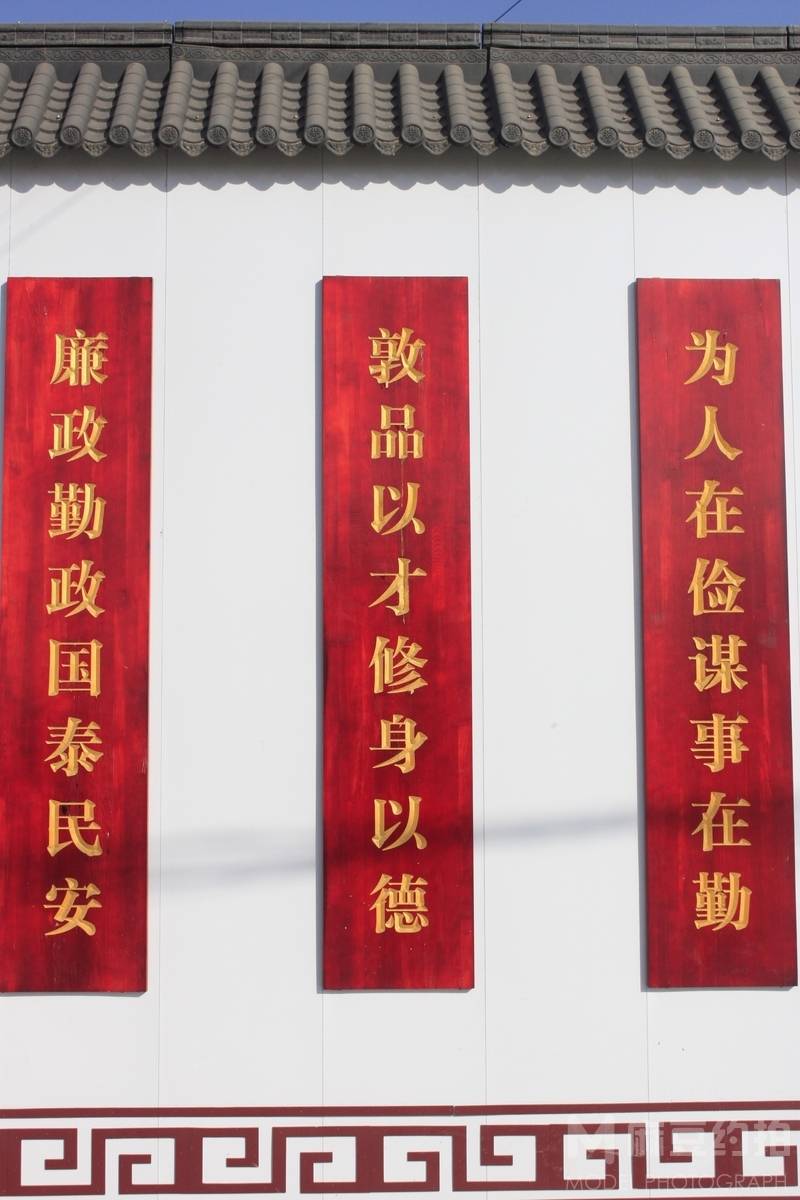 为人在俭谋事在勤
敦品以才修身以德
廉政勤政国泰民安
麻豆约拍
MODEL PHOTOGRAPH